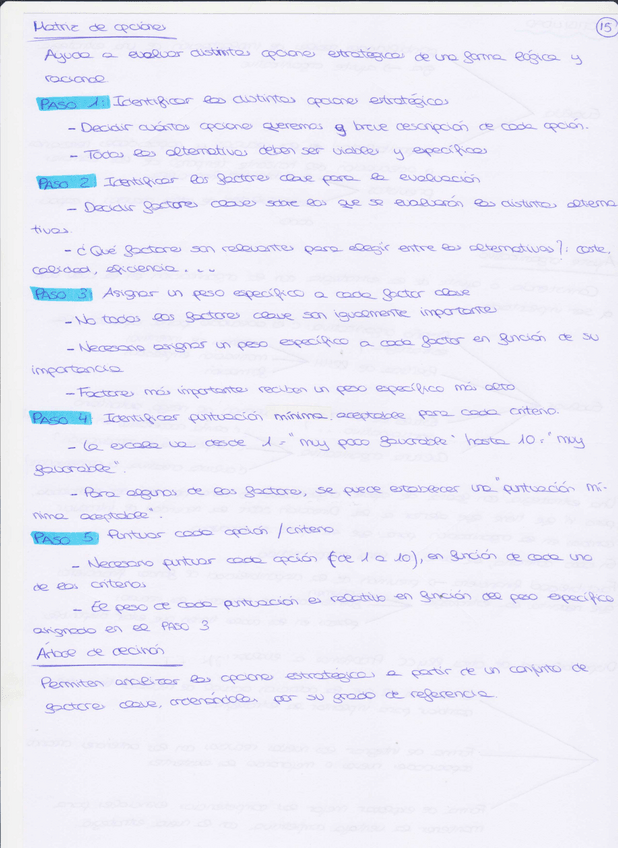 Matriz de opciones
15
Ayuda a evaluar distintas opciones estratégicas de una forma lógica y
racional
PASO 1: Identificar las distintas opciones estratégicas
- Decidir cuántas opciones queremos y breve descripción de cada opción.
- Todas las alternativas deben ser viables y específicas
PASO 2 Identificar los factores clave para la evaluación
- Decidir factores claves sobre los que se evaluarán las distintas alterna
tivas.
- ¿Qué factores son relevantes para elegir entre las alternativas?: coste,
calidad, eficiencia....
PASO 3 Asignar un peso específico a cada factor clave
- No todos los factores clave son igualmente importante
- Necesario asignar un peso específico a cada factor en función de su
importancia
- Factores más importantes reciben un peso específico más alto
PASO 4 Identificar puntuación mínima aceptable para cada criterio.
- La escala va desde 1="muy poco favorable" hasta 10="muy
favorable".
- Para algunos de los factores, se puede establecer una "puntuación mí-
nima aceptable".
PASO 5 Puntuar cada opción / criterio
- Necesario puntuar cada opción (de 1 a 10), en función de cada uno
de los criterios
- El peso de cada puntuación es relativo en función del peso específico
asignado en el PASO 3
Árbol de decisión
Permiten analizar las opciones estratégicas a partir de un conjunto de
factores clave, ordenándolas por su grado de referencia.